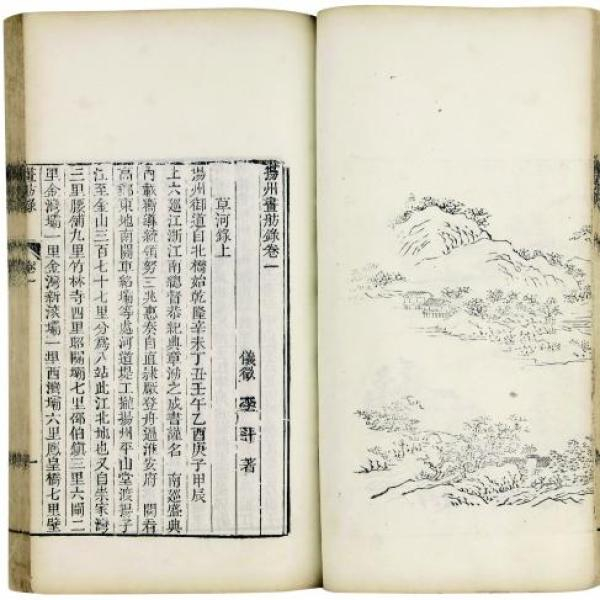 揚州畫舫錄卷一
儀徵 李斗 著
草河錄上
揚州御道自北橋始乾隆辛未丁丑壬午乙酉庚子甲辰
上六巡江浙江南總督恭紀典章泐之成書謹名 南巡盛典
內載嚮導統領努三兆惠奏自直隸厰登舟過淮安府 閱看
高郵東地南關車絡壩等處河道堤工攏揚州平山堂渡揚子
江至金山三百七十七里分爲八站此江北地也又自崇家灣
三里腰舖九里竹林寺四里昭關壩七里邵伯鎮三里六閘二
里金灣壩一里金灣新滚壩一里西灣壩六里鳳皇橋七里壁
畫舫錄 卷一 一